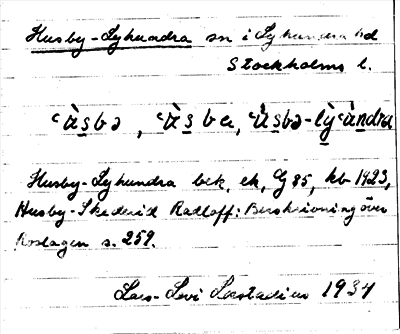 Husby-Lyhundra sn i Lyhundra hd
Stockholms l.
‛ùsbə, ‛ùsba, ‛ùsbə-lỳ‛ùndra
Husby-Lyhundra bek, ek, G 85, kb 1423,
Husby-Skederid Radloff: Beskrivning över
Roslagen s. 259.
Lars-Levi Læstadius 1934